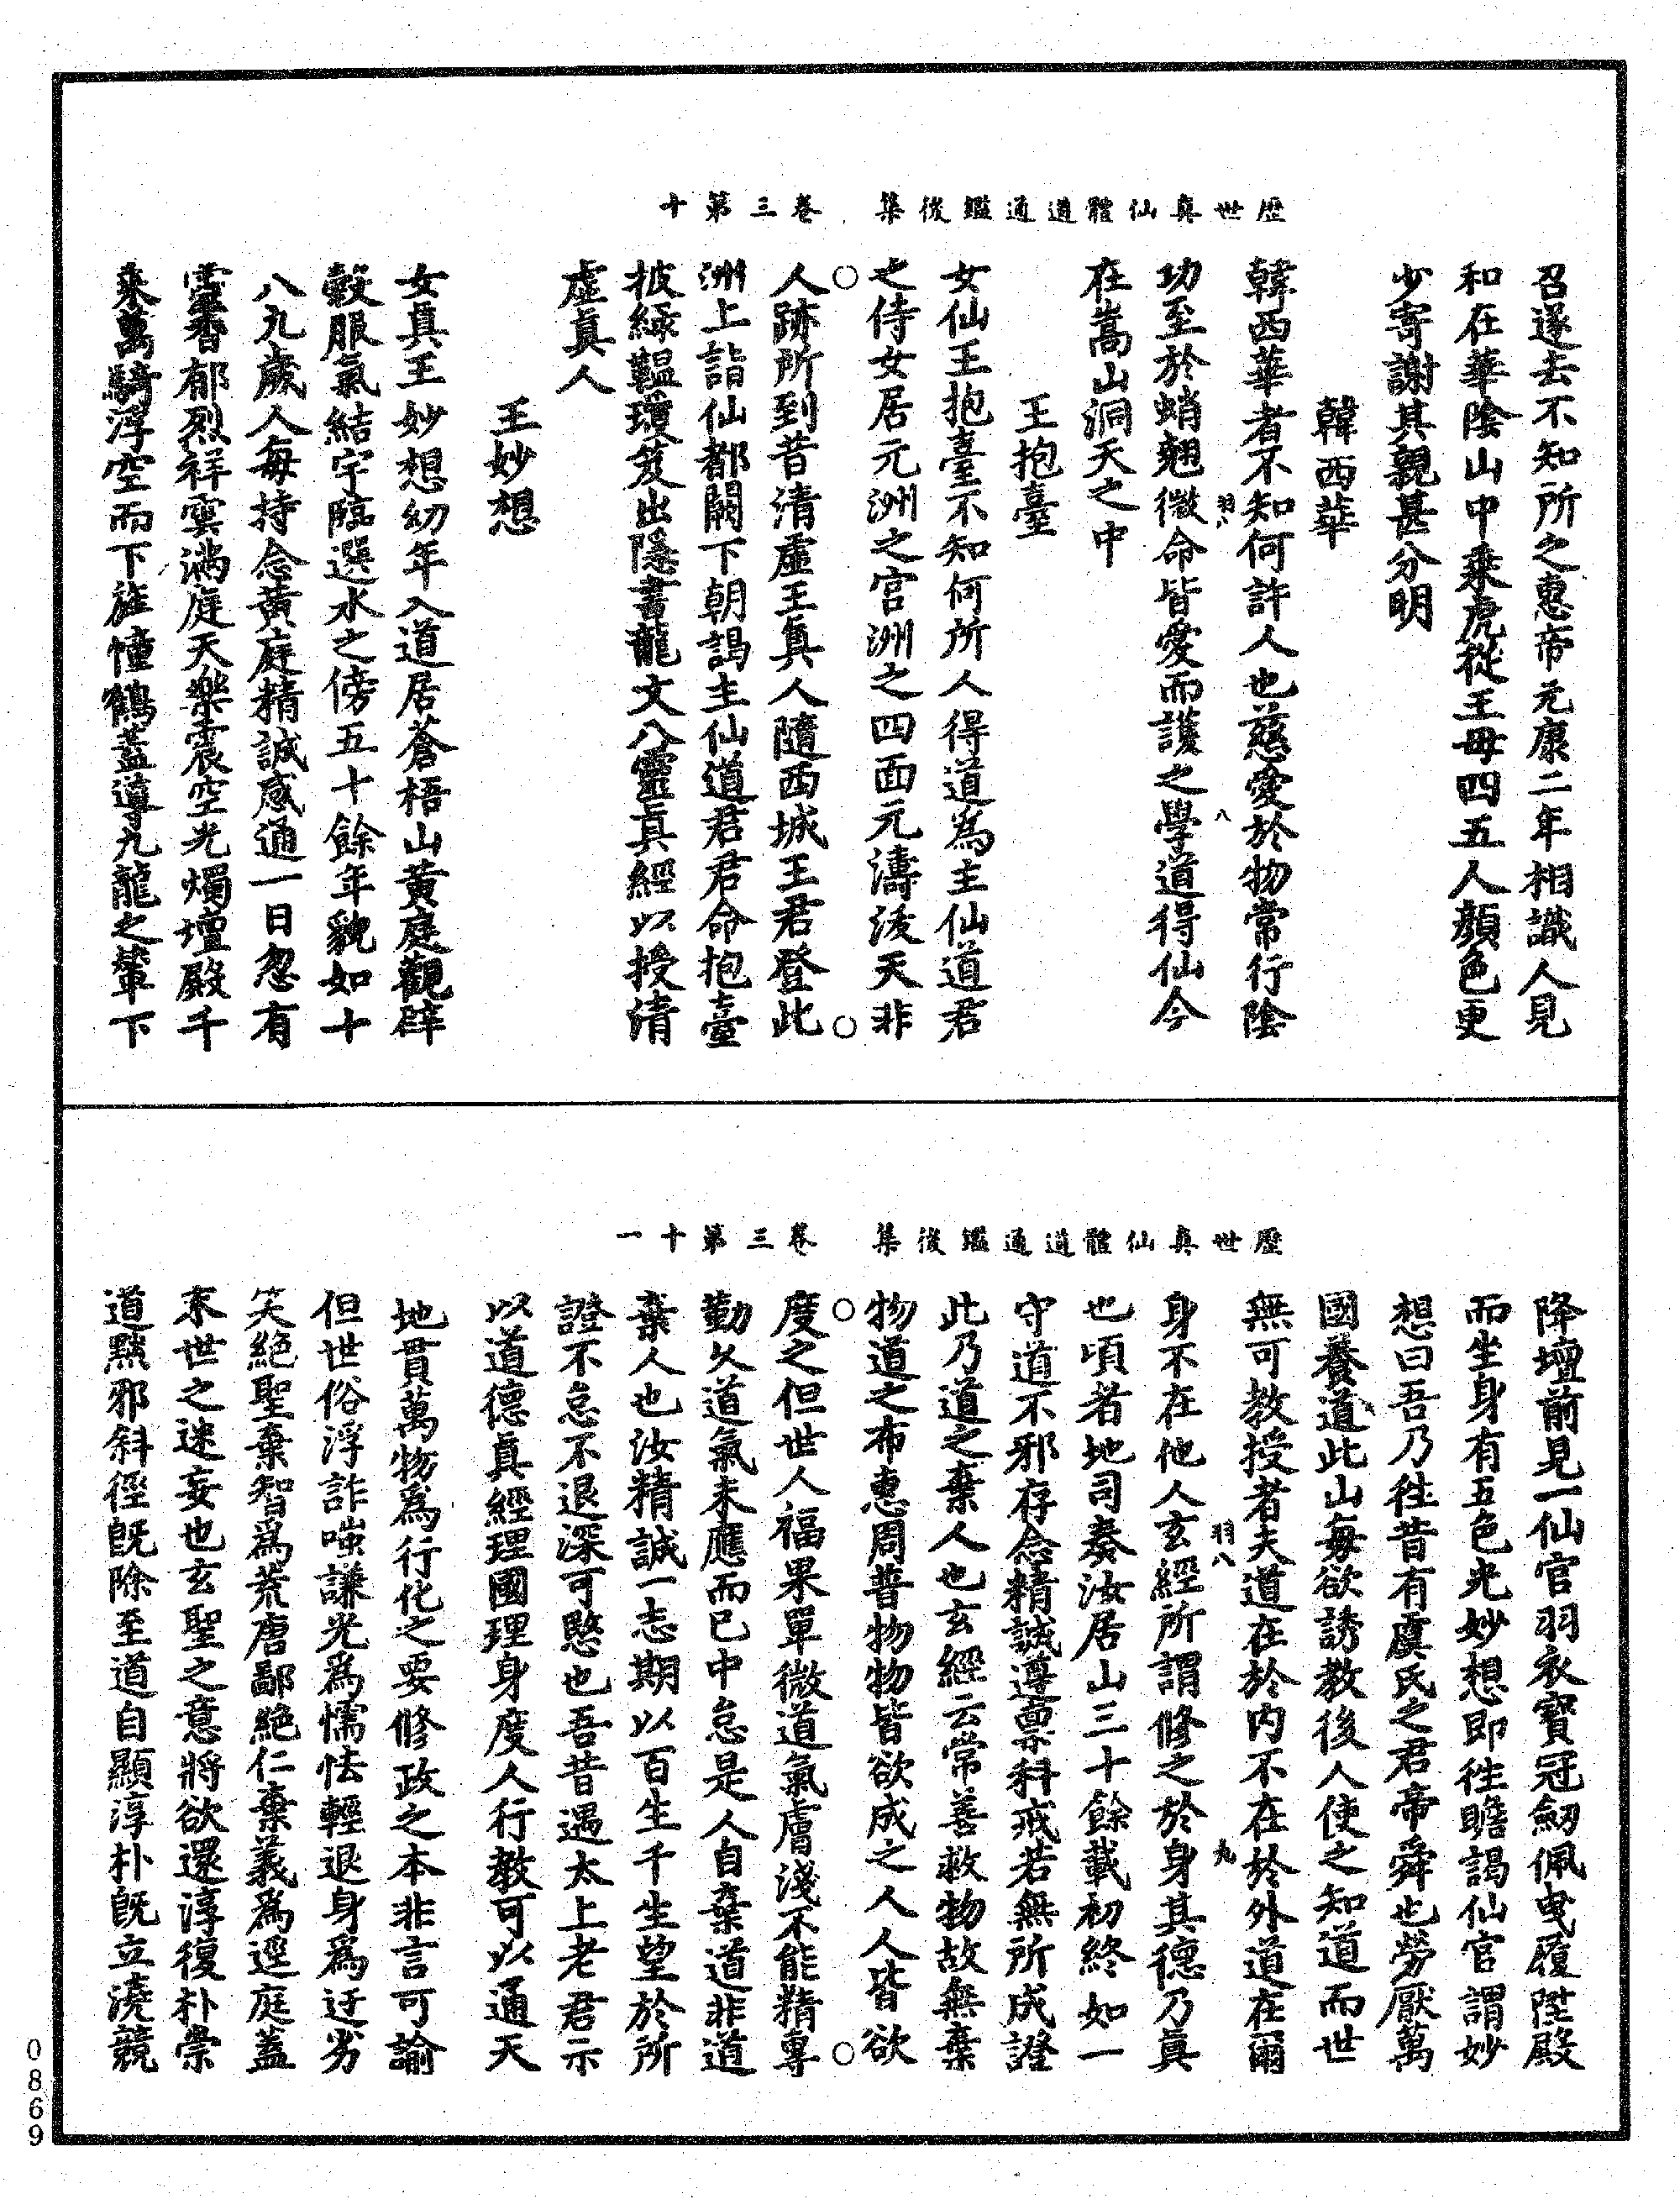 歷世真仙體道通鑑後集　卷三第十
召遂去不知所之惠帝元康二年相識人見
和在華陰山中乗虎從王母四五人顏色更
少寄謝其親甚分明
韓西華
韓西華者不知何許人也慈愛於物常行陰
羽八
八
功至於蛸翹微命皆愛而護之學道得仙今
在嵩山洞天之中
王抱臺
女仙王抱臺不知何所人得道為主仙道君
之侍女居元洲之宫洲之四面元濤浚天非
人跡所到昔清虛王眞人隨西城王君登此
洲上詣仙都闕下朝謁主仙道君君命抱臺
披緑韞瓊笈出隱書龍文八靈真經以授清
虛眞人
王妙想
女真王妙想幼年入道居蒼梧山黃庭觀辟
穀服氣結宇臨選水之傍五十餘年貌如十
八九歲人每持念黃庭精誠感通一日忽有
靈香郁烈祥雲滿庭天樂震空光燭壇殿千
乗萬騎浮空而下旌幢鶴蓋導九龍之輦下
歷世真仙體道通鑑後集　卷三第十一
降壇前見一仙官羽衣寶冠劒佩曳履陞殿
而坐身有五色光妙想即往瞻謁仙官謂妙
想曰吾乃徃昔有虞氏之君帝舜也勞厭萬
國養道此山每欲誘教後人使之知道而世
無可教授者夫道在於内不在於外道在爾
羽八
九
身不在他人玄經所謂修之於身其德乃眞
也頃者地司奏汝居山三十餘載初終如一
守道不邪存念精誠遵禀科戒若無所成證
此乃道之棄人也玄經云常善救物故無棄
物道之布惠周普物物皆欲成之人人皆欲
度之但世人福果單微道氣膚淺不能精專
勤久道氣未應而已中怠是人自棄道非道
棄人也汝精誠一志期以百生千生望於所
證不怠不退深可愍也吾昔遇太上老君示
以道德真經理國理身度人行教可以通天
地貫萬物為行化之要修政之本非言可諭
但世俗浮詐嗤謙光爲懦怯輕退身爲迂劣
笑絶聖棄智爲荒唐鄙絶仁棄義爲逕庭蓋
末世之迷妄也玄聖之意將欲還淳復朴崇
道黜邪斜徑旣除至道自顯淳朴旣立澆競
0869